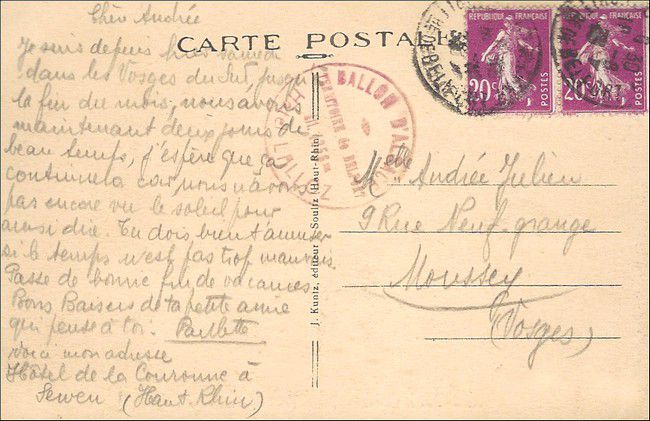 Chère Andrée
Je suis depuis hier samedi
dans les Vosges du Sud, jusqu'à
la fin du mois, nous avons
maintenant deux jours de
beau temps, j'espère que ça
continuera car nous n'avons
pas encore vu le soleil pour
ainsi dire. Tu dois bien t'amuser
si le temps n'est pas trop mauvais.
Passe de bonne fin de vacances
Bons Baisers de ta petite amie
qui pense à toi. Paulette
voici mon adresse
Hôtel de la Couronne à
Sewen (Haut-Rhin)
CARTE POSTALE
J. Kuntz, éditeur - Soultz (Haut-Rhin)
BALLON D'ALSACE
REPUBLIQUE FRANÇAISE
20c
POSTES
REPUBLIQUE FRANÇAISE
20c
POSTES
Melle Andrée Julien
9 Rue Neuf-grange
Moussey
(Vosges)